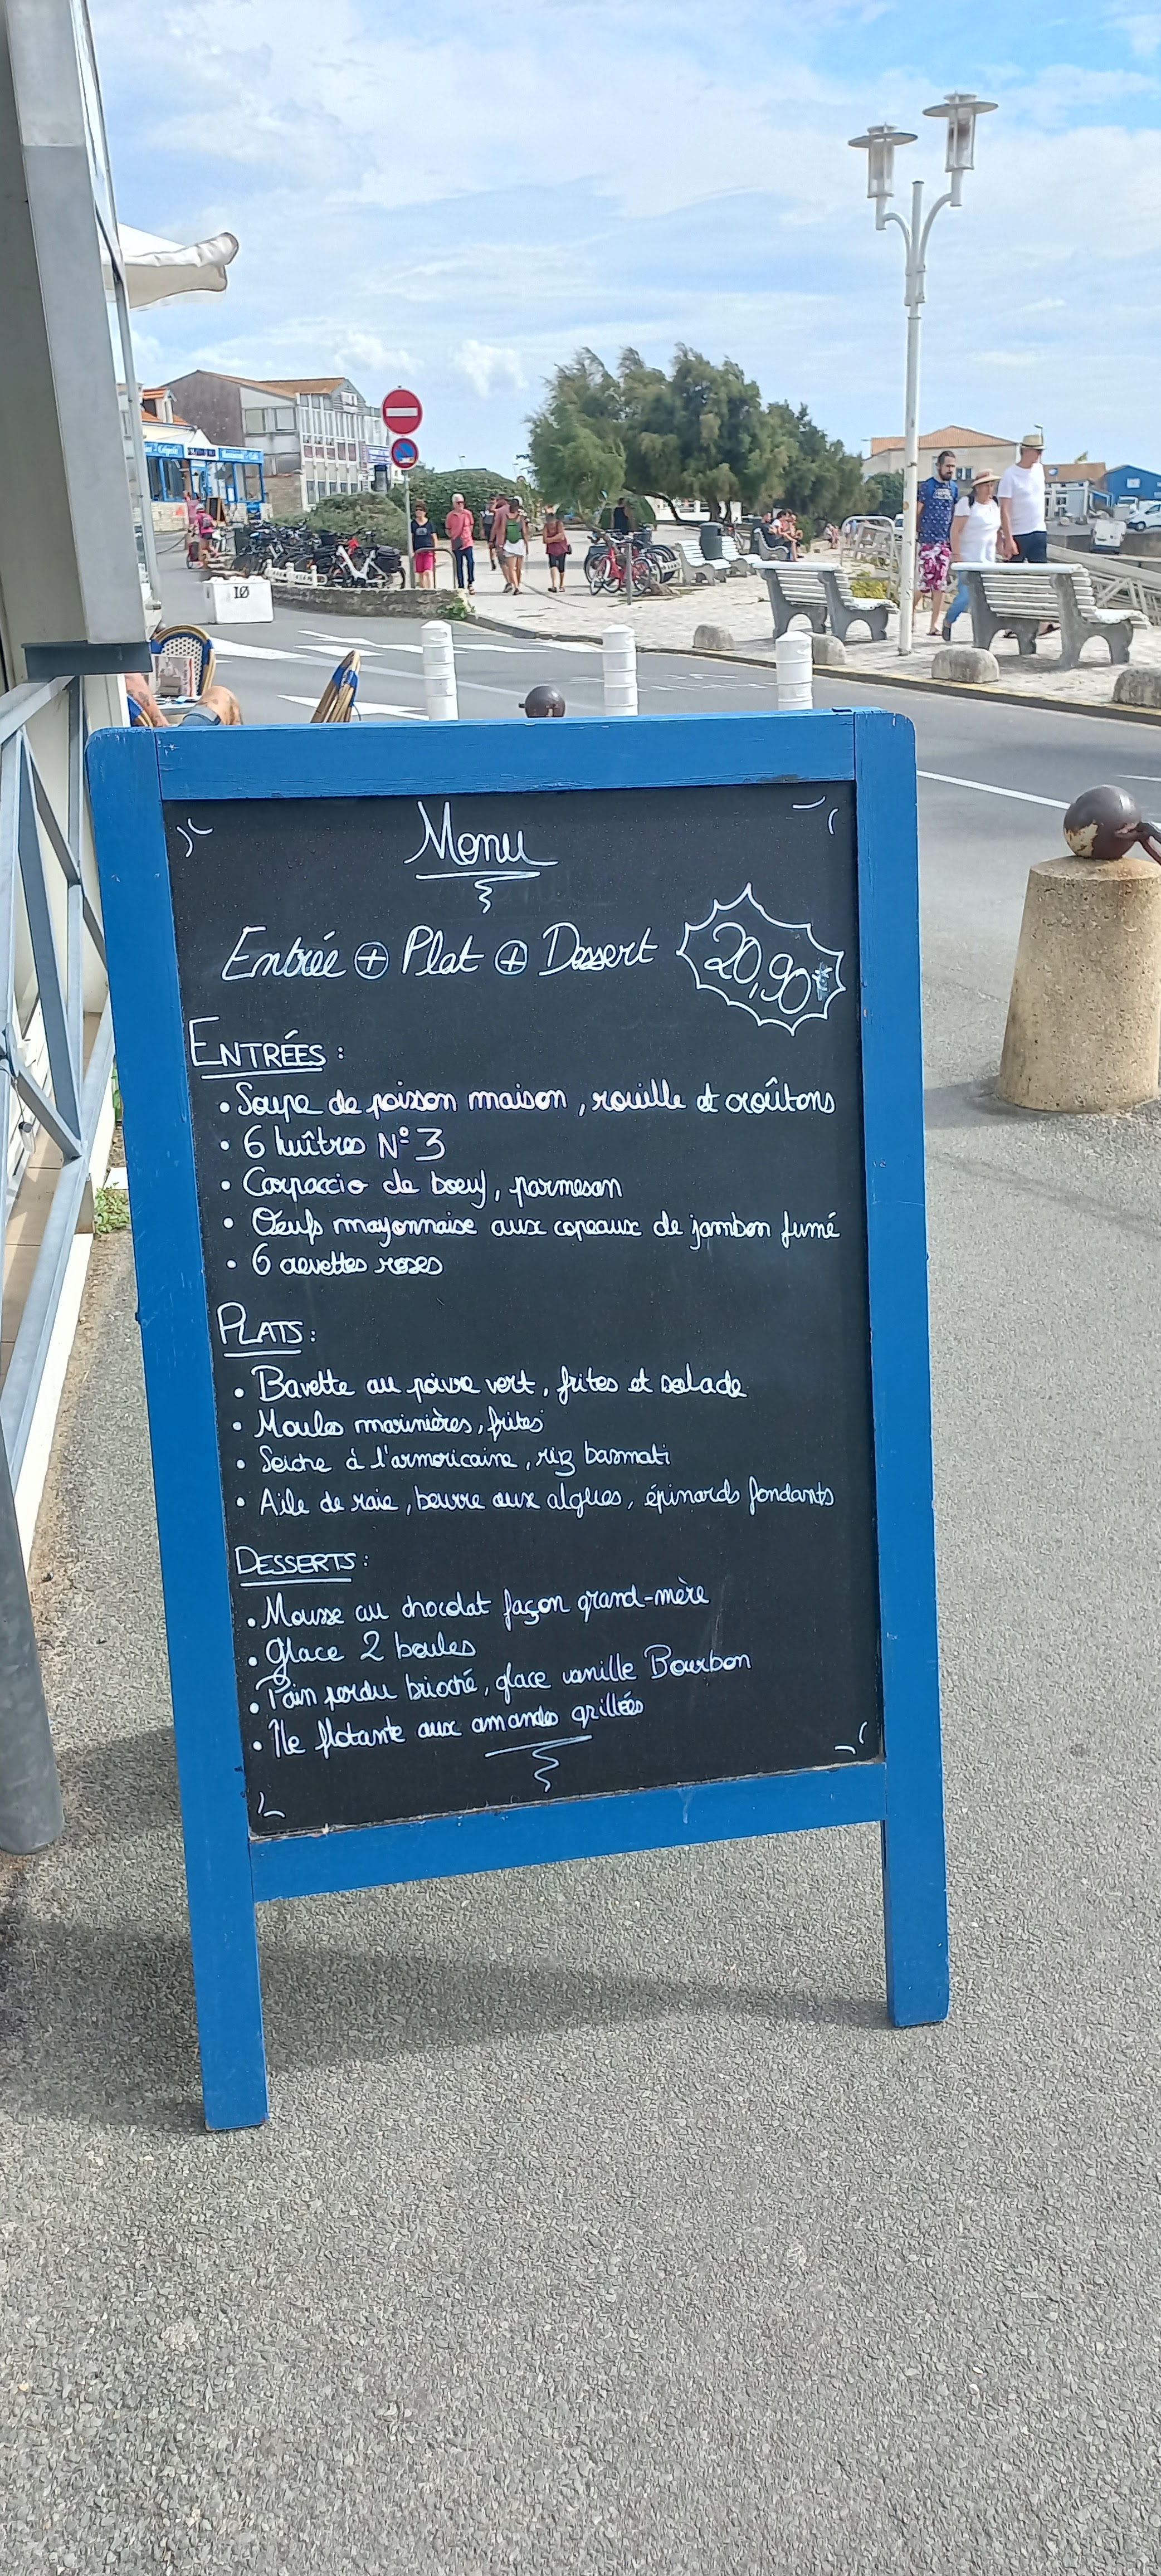 10
Menu
Entrée + Plat + Dessert 20,90€
ENTRÉES :
• Soupe de poisson maison, rouille et croûtons
• 6 huîtres N°3
• Carpaccio de boeuf, parmesan
• Œufs mayonnaise aux copeaux de jambon fumé
• 6 crevettes roses
PLATS :
• Bavette au poivre vert, frites et salade
• Moules marinières, frites
• Seiche à l'armoricaine, riz basmati
• Aile de raie, beurre aux algues, épinards fondants
DESSERTS :
• Mousse au chocolat façon grand-mère
• Glace 2 boules
• Pain perdu brioché, glace vanille Bourbon
• Île flotante aux amandes grillées